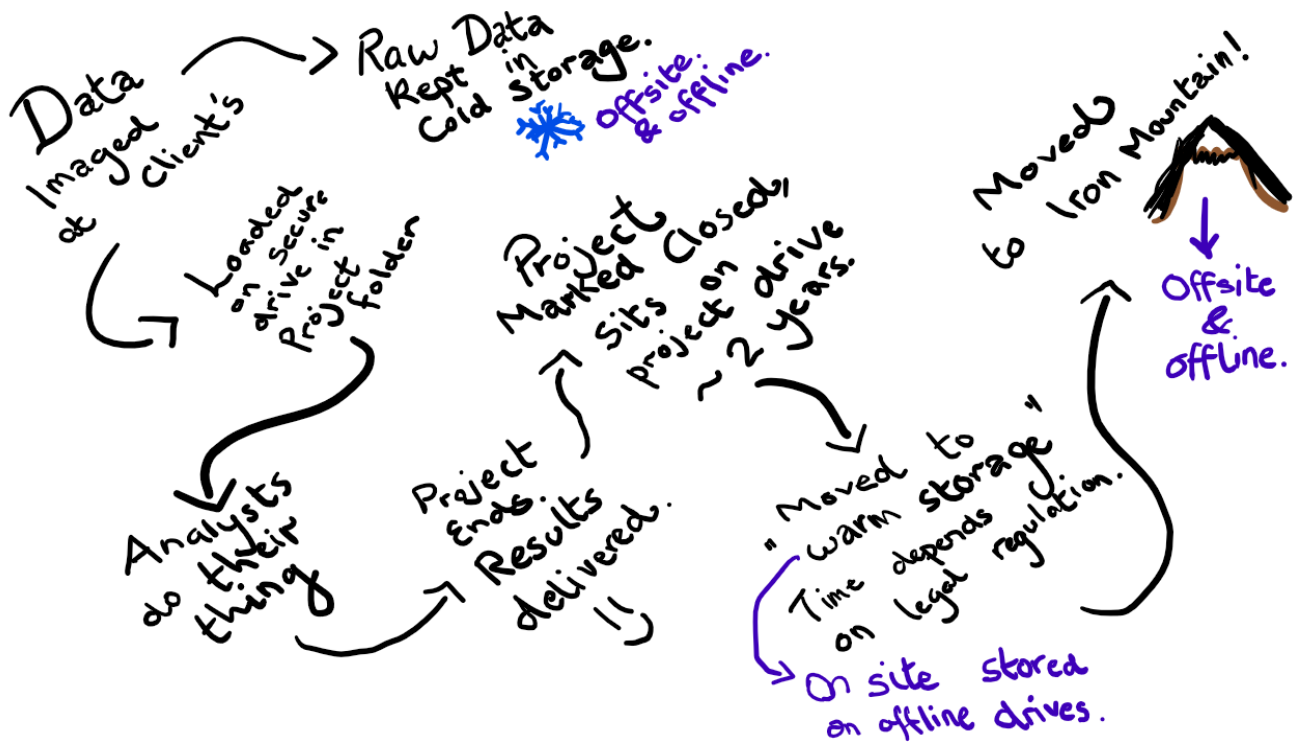 Data
Imaged
at client's
Raw Data
Kept in
Cold Storage.
Offsite.
& offline.
Loaded
on secure
drive in
Project
folder
Analysts
do their
thing
Project
Ends.
Results
delivered.
=)
Project
Marked Closed,
Sits on
project drive
~ 2 years.
"Moved to
warm storage"
Time depends
on legal regulation.
On site stored
on offline drives.
Moved
to Iron Mountain!
Offsite
&
offline.